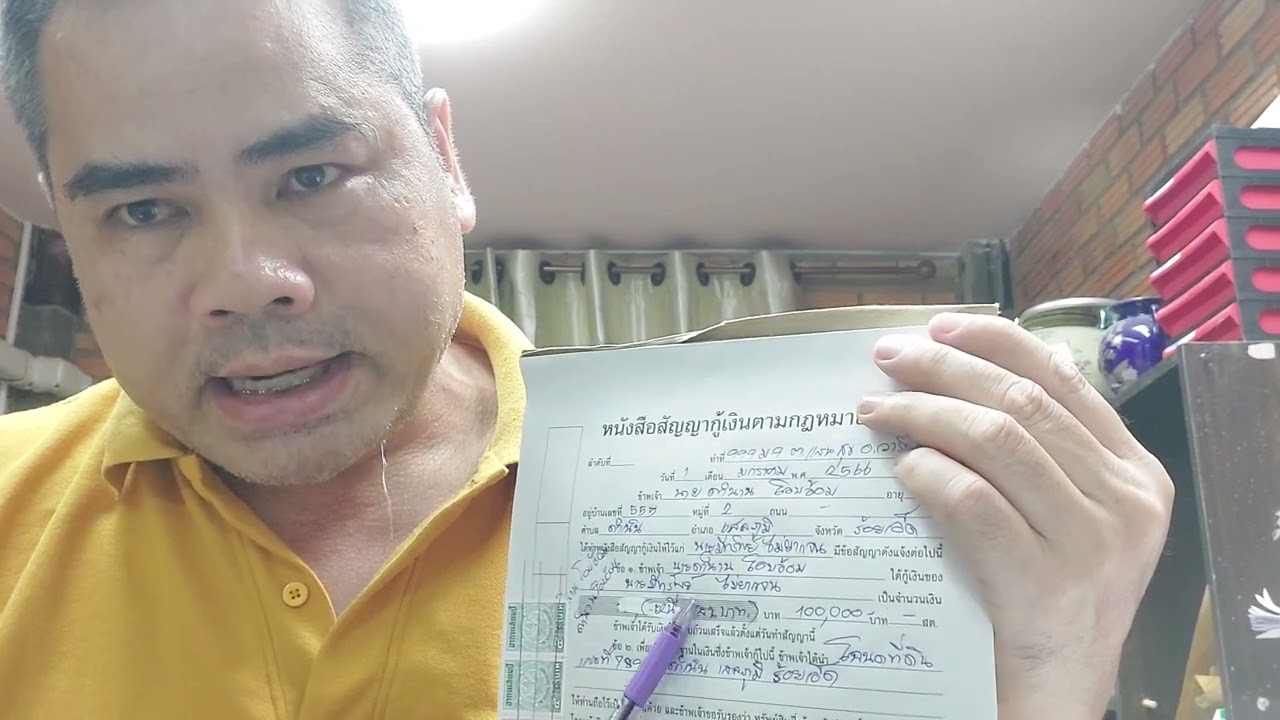 หนังสือสัญญากู้เงินตามกฎหมาย
ลำดับที่ ทำที่ 999 ม.9 ต.
วันที่ 1 เดือน มกราคม พ.ศ. 2566
ข้าพเจ้า นาย ตำนาน อายุ
อยู่บ้านเลขที่ 555 หมู่ที่ 2 ถนน -
ตำบล อำเภอ เสลภูมิ จังหวัด ร้อยเอ็ด
ได้ทำหนังสือสัญญากู้เงินให้ไว้แก่ นายมีทรัพย์ ไม่ยากจน มีข้อสัญญาดังแจ้งต่อไปนี้
ข้อ ๑. ข้าพเจ้า นายตำนาน ได้กู้เงินของ
นายมีทรัพย์ ไม่ยากจน เป็นจำนวนเงิน
บาท 100,000 บาท - สต.
ข้าพเจ้าได้รับ ถ้วนเสร็จแล้วตั้งแต่วันทำสัญญานี้
ข้อ ๒. เพื่อ ฐานในเงินซึ่งข้าพเจ้ากู้ไปนี้ ข้าพเจ้าได้นำ โฉนดที่ดิน
เลขที่ 789 เสลภูมิ ร้อยเอ็ด
ให้ท่านถือไว้ ด้วย และข้าพเจ้าขอรับรองว่า
อากรแสตมป์
อากรแสตมป์